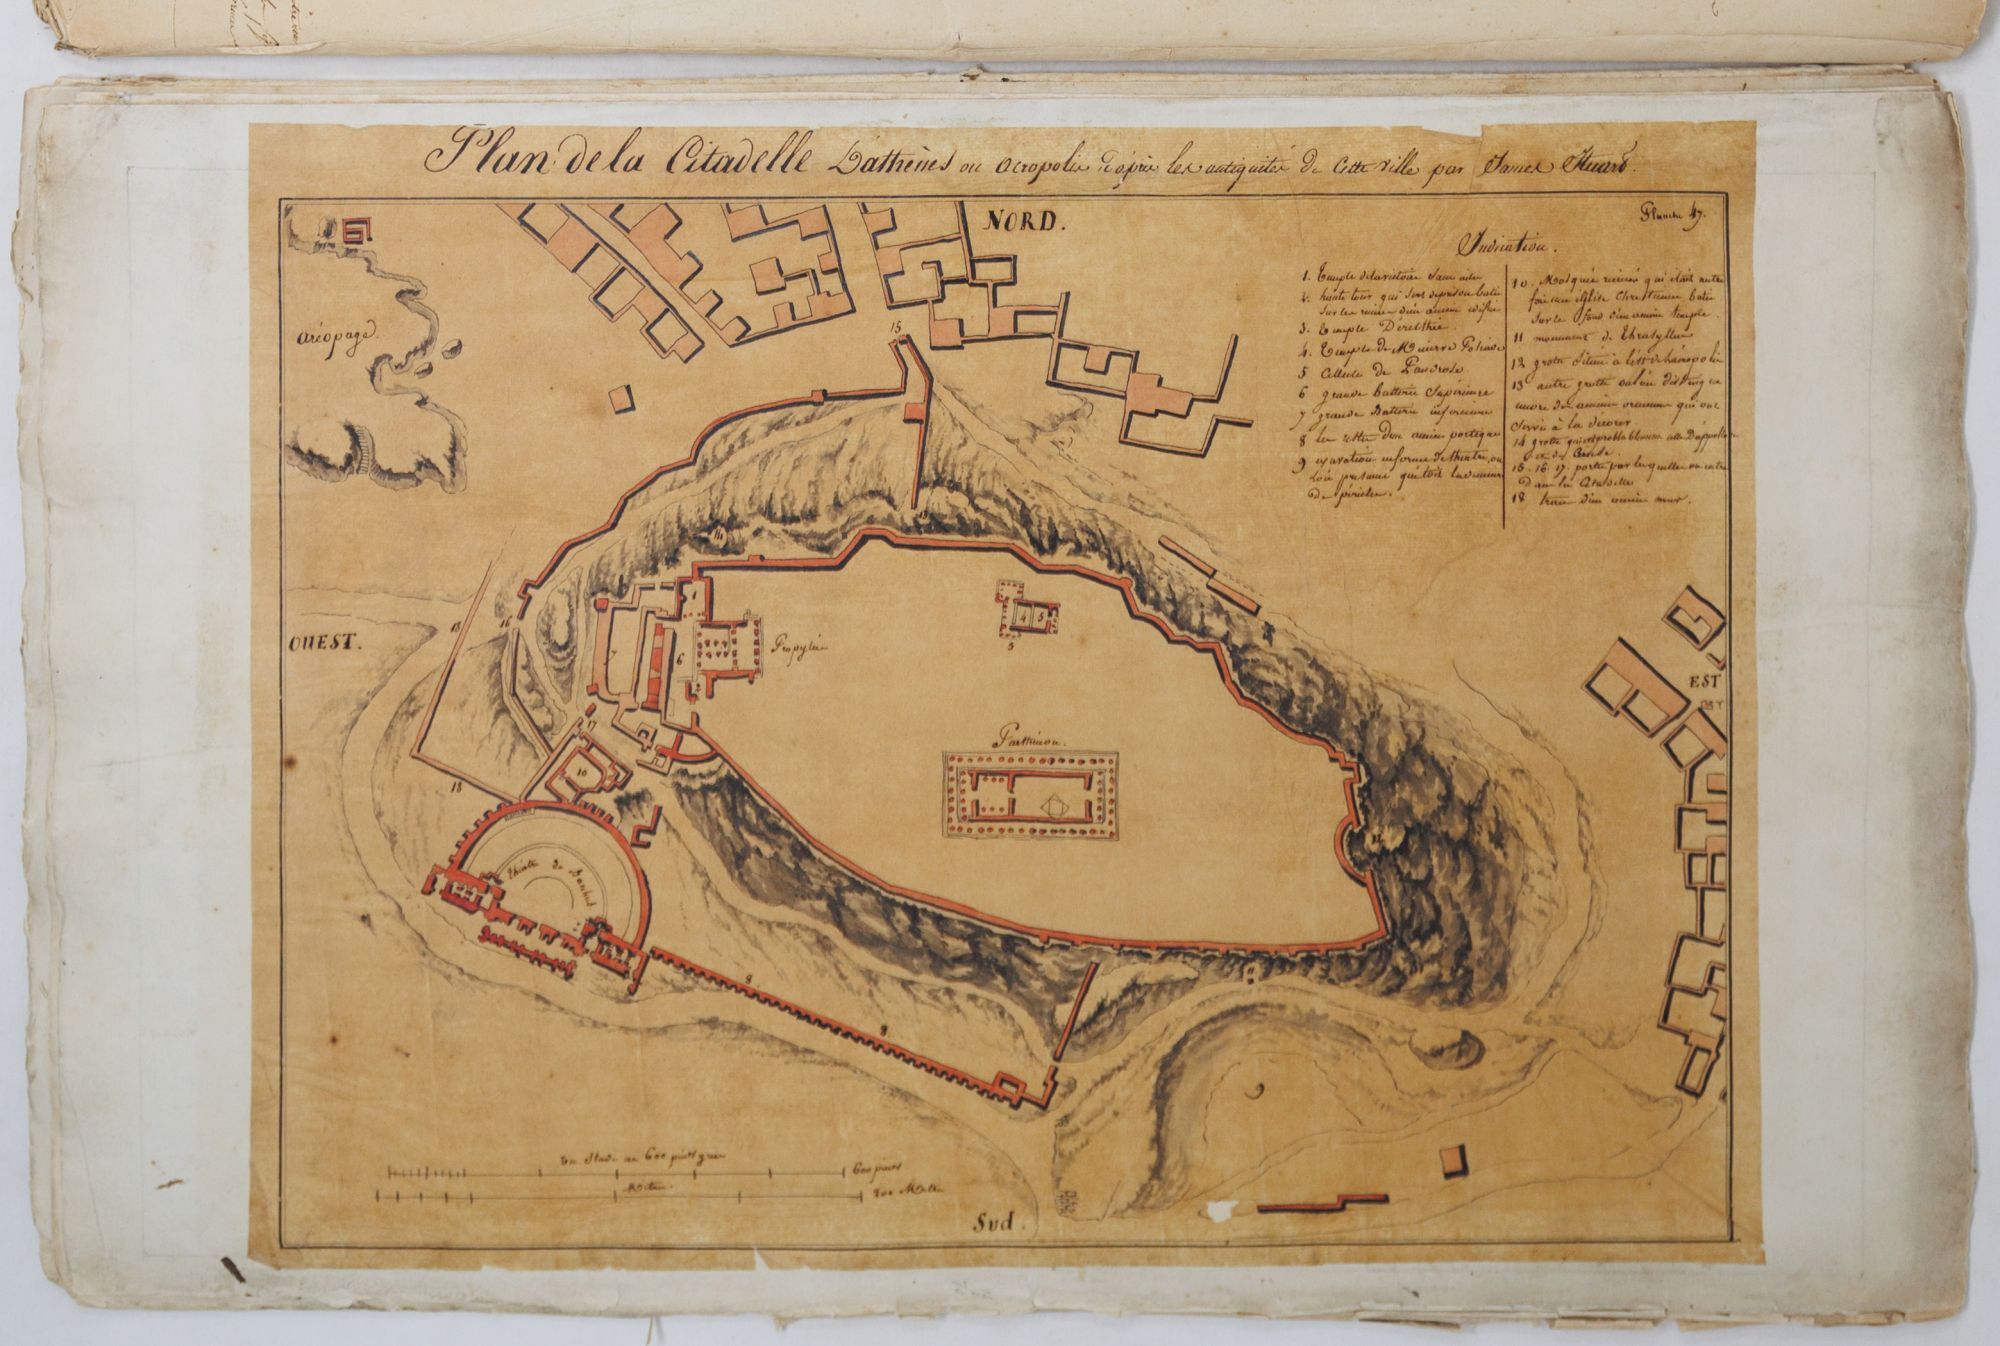 Plan de la Citadelle D'athènes ou acropolis d'après les antiquités de cette ville par James Stuard.
Planche 47.
NORD.
Indication.
1. Temple de la victoire sans aile
2. haute tour qui sert de prison batie
sur les ruines d'un ancien édifice
3. Temple D'érecthée.
4. Temple de Minerve Poliade
5 cellule de Pandrose.
6 grande batterie Supérieure
7 grande Batterie inférieure
8 les restes d'un ancien portique
9 excavation informe de theatre, ou
l'on présume qu'étoit
de périclès.
10. Mosquée ruinée qui était autre
fois une église Chrétienne batie
sur le fond d'un ancien temple.
11 monument de Thrasyllus
12 grotte située à l'est de l'acropolis
13 autre grotte où l'on distingue
encore des anciens ornemens qui ont
servis à la décorer.
14 grotte qui est probablement celle D'appollon
et de Creuse.
15. 16. 17. porte par lesquelles on entre
Dans la Citadelle
18 trace d'un ancien mur.
aréopage.
15
13
14
OUEST.
18
16
7
6
1
2
Propylée
4
5
3
EST
EST
17
10
18
Parthénon.
12
Théatre de Bacchus
8
8
11
9
Un Stade ou 600 pieds grecs
600 pieds
Mètres.
200 Mètr
Sud.